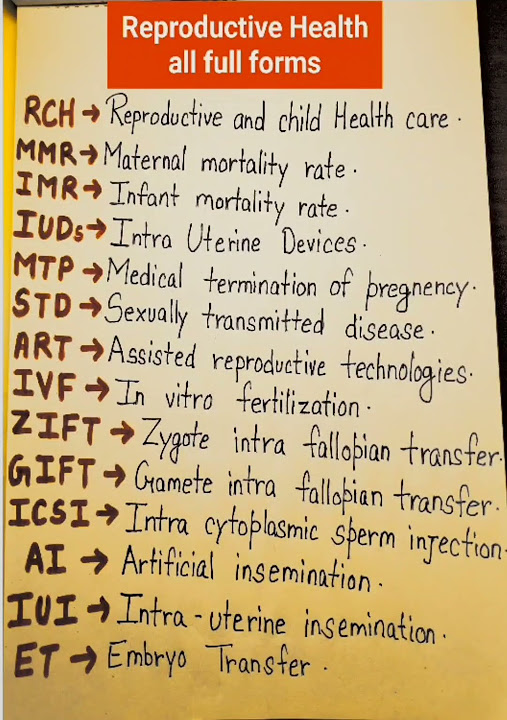 Reproductive Health
all full forms
RCH → Reproductive and child Health care.
MMR → Maternal mortality rate.
IMR → Infant mortality rate.
IUDs → Intra Uterine Devices.
MTP → Medical termination of pregnency.
STD → Sexually transmitted disease.
ART → Assisted reproductive technologies.
IVF → In vitro fertilization.
ZIFT → Zygote intra fallopian transfer.
GIFT → Gamete intra fallopian transfer.
ICSI → Intra cytoplasmic sperm injection.
AI → Artificial insemination.
IUI → Intra-uterine insemination.
ET → Embryo Transfer.